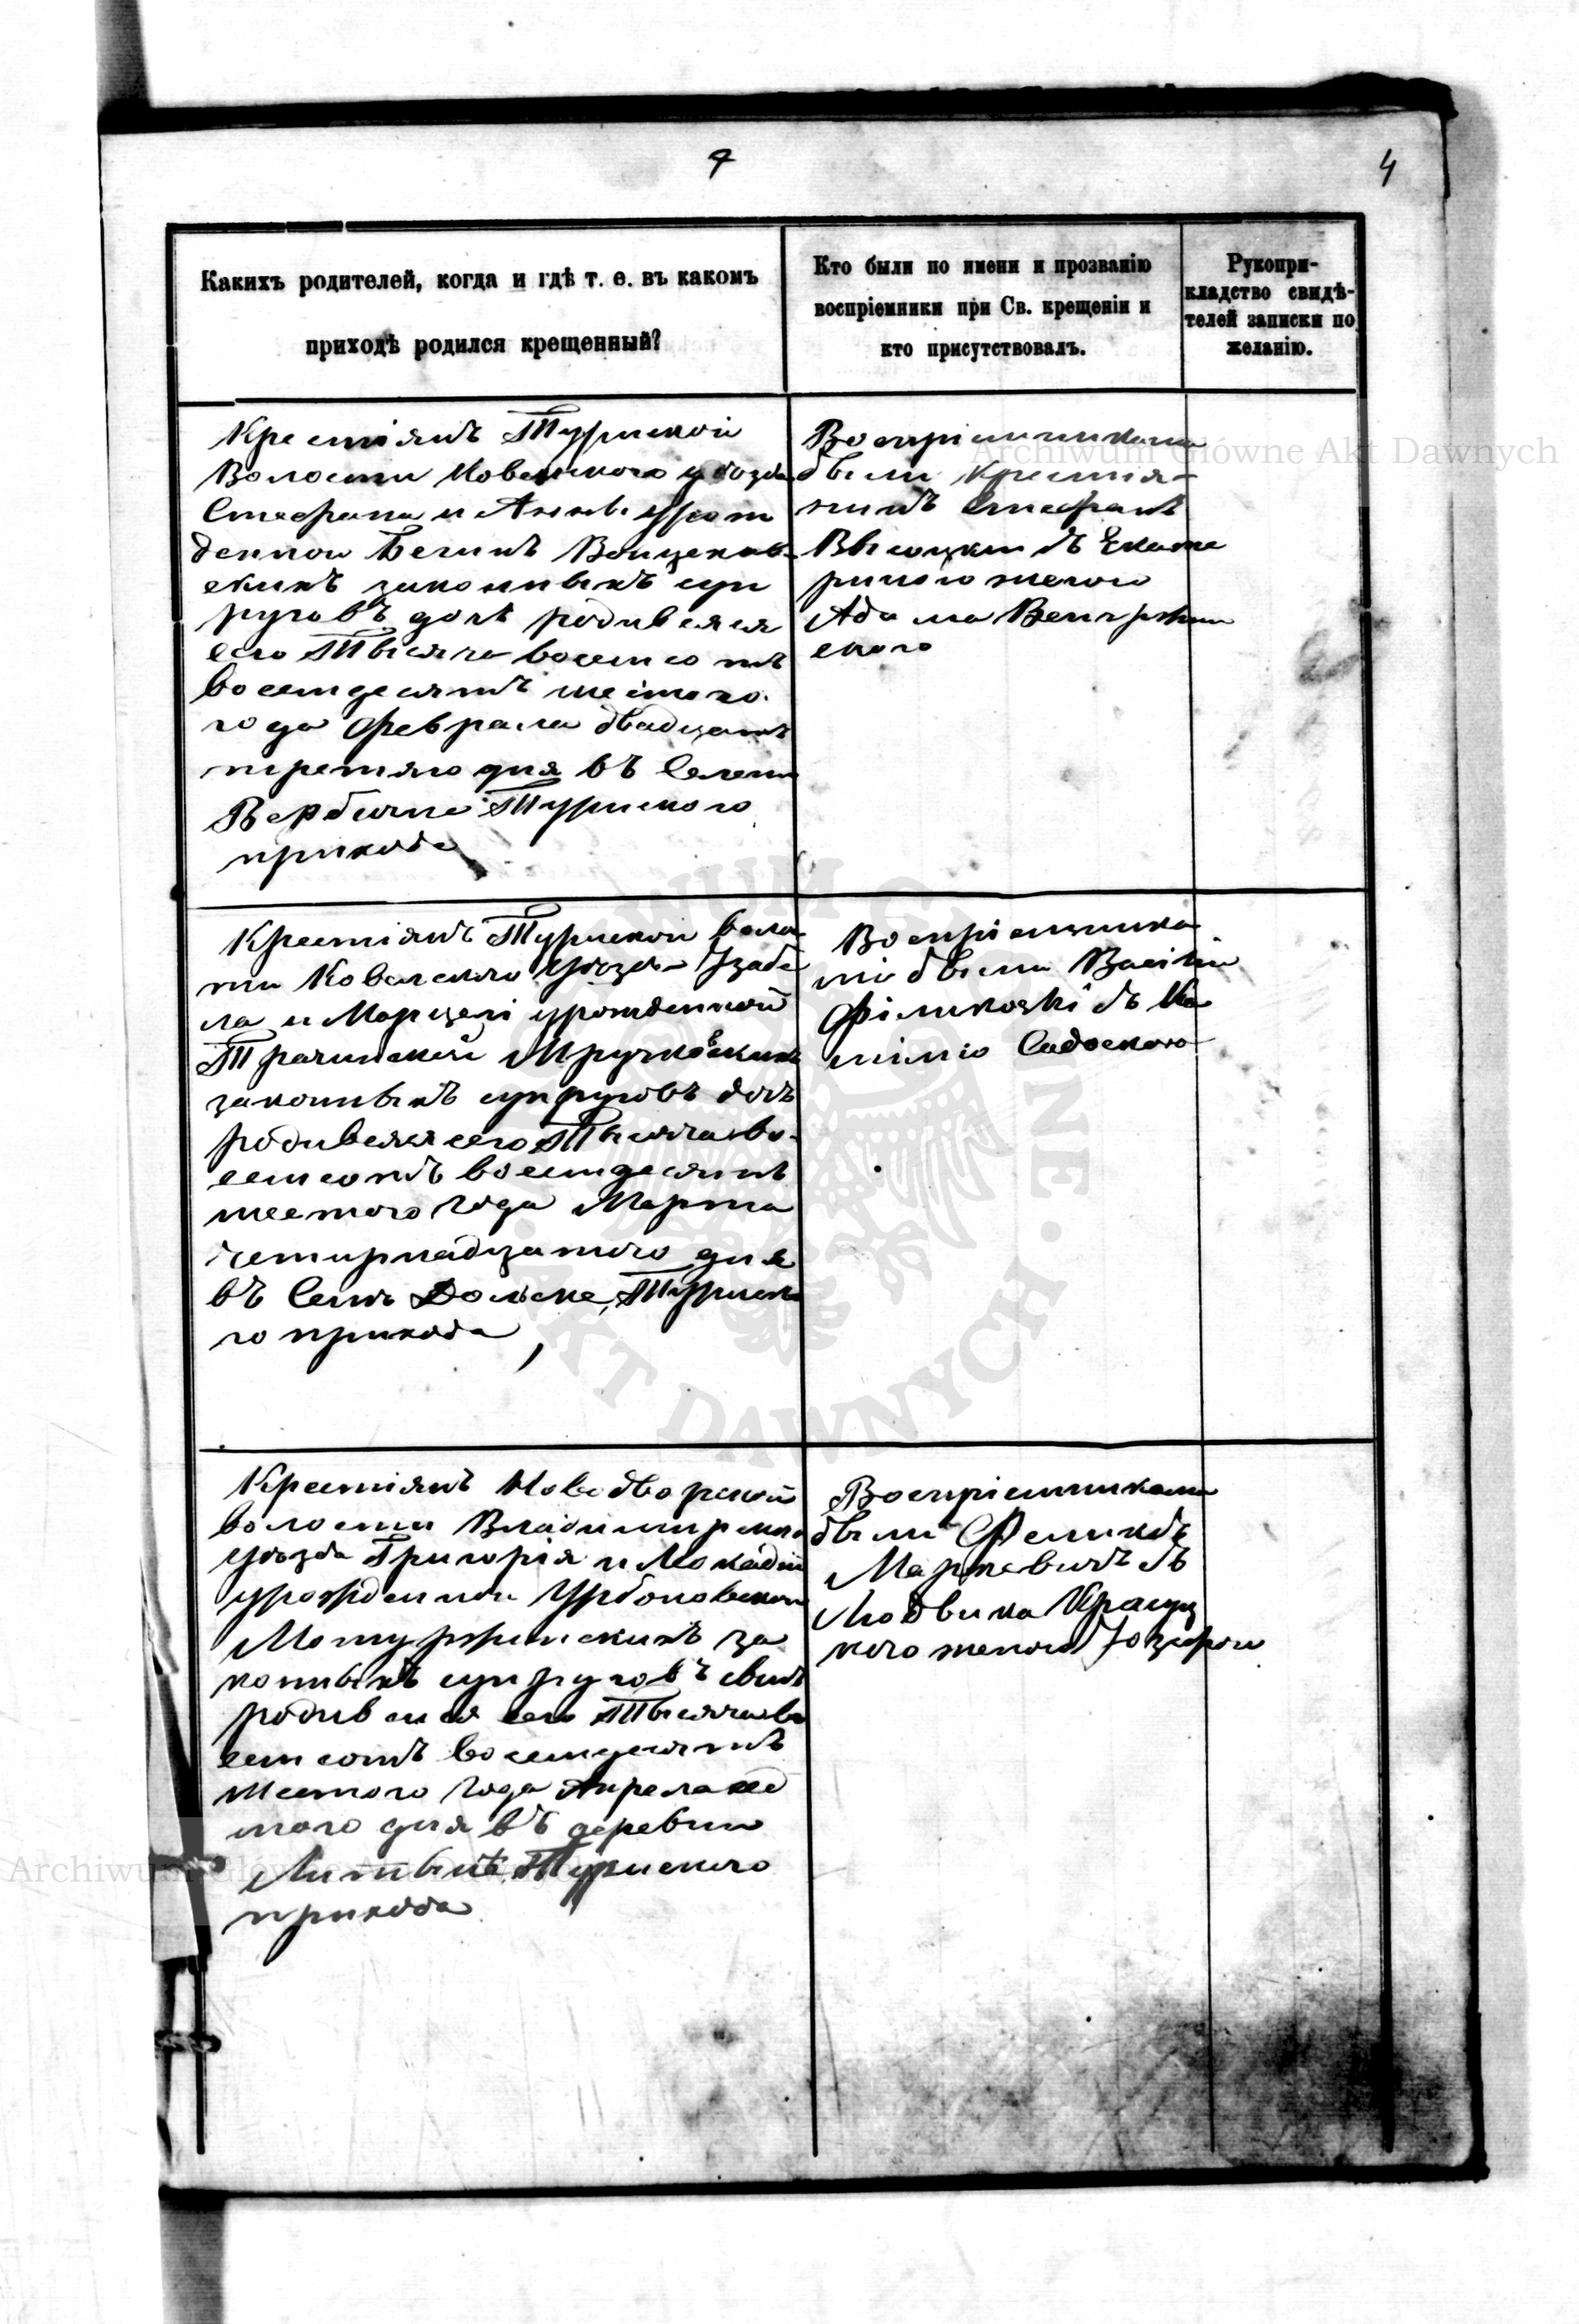 4
4
Каких родителей, когда и гдѣ т. е. въ какомъ
приходѣ родился крещенный?
Кто были по имени и прозванію
воспріемники при Св. крещеніи и
кто присутствовалъ.
Рукопри-
кладство свидѣ-
телей записки по
желанію.
Крестіянъ Турииской
Волости Ковельского уѣзда
Стефана и Анны урож
денной
скихъ законныхъ суп
руговъ дочь родивсяся
сего Тысяча восемсотъ
восемдесятъ шестого
года февраля двадцать
третяго дня въ Селени
Вербичне Турииского
прихода
Воспріемниками
были крестія-
нинъ Стефанъ
Высоцкий съ Екате
риною женою
Адама Венгржин
ского
Крестіянъ Турииской воло
сти Ковельского уѣзда
ла и Марцелі урожденной
законныхъ супруговъ дочь
родивсяся сего Тысяча во-
семсотъ восемдесятъ
шестого года Марта
четирнадцатого дня
въ Селѣ Дольске, Турииско
го прихода,
Воспріемника
ми были Василій
съ Ка
милію Садоскою
Крестіянъ Новодворской
волости Владимирского
уѣзда Григорія и Леокадіи
урожденной Урбановской
за
конныхъ супруговъ сынъ
родивсися сего Тысяча во
семсотъ восемдесятъ
Шестого года Апреля сед
мого дня въ деревни
Литынѣ Турииского
прихода
Воспріемниками
были Феликсъ
Маркевичъ съ
Людвика
кого женою Юзефою
Archiwum Główne Akt Dawnych
ARCHIWUM GŁÓWNE AKT DAWNYCH
Archiwum Główne Akt Dawnych